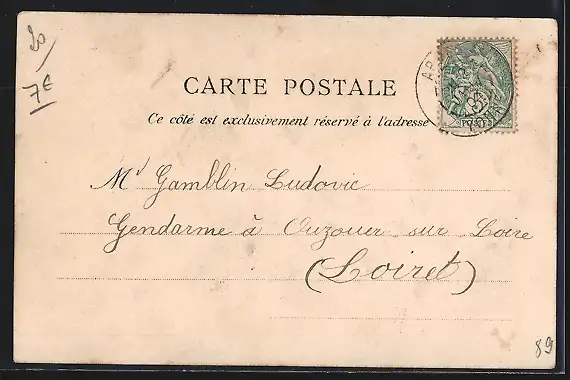 20
7€
CARTE POSTALE
Ce côté est exclusivement réservé à l'adresse
5
POSTES
Mr Gamblin Ludovic
Gendarme à Ouzouer sur Loire
(Loiret)
89